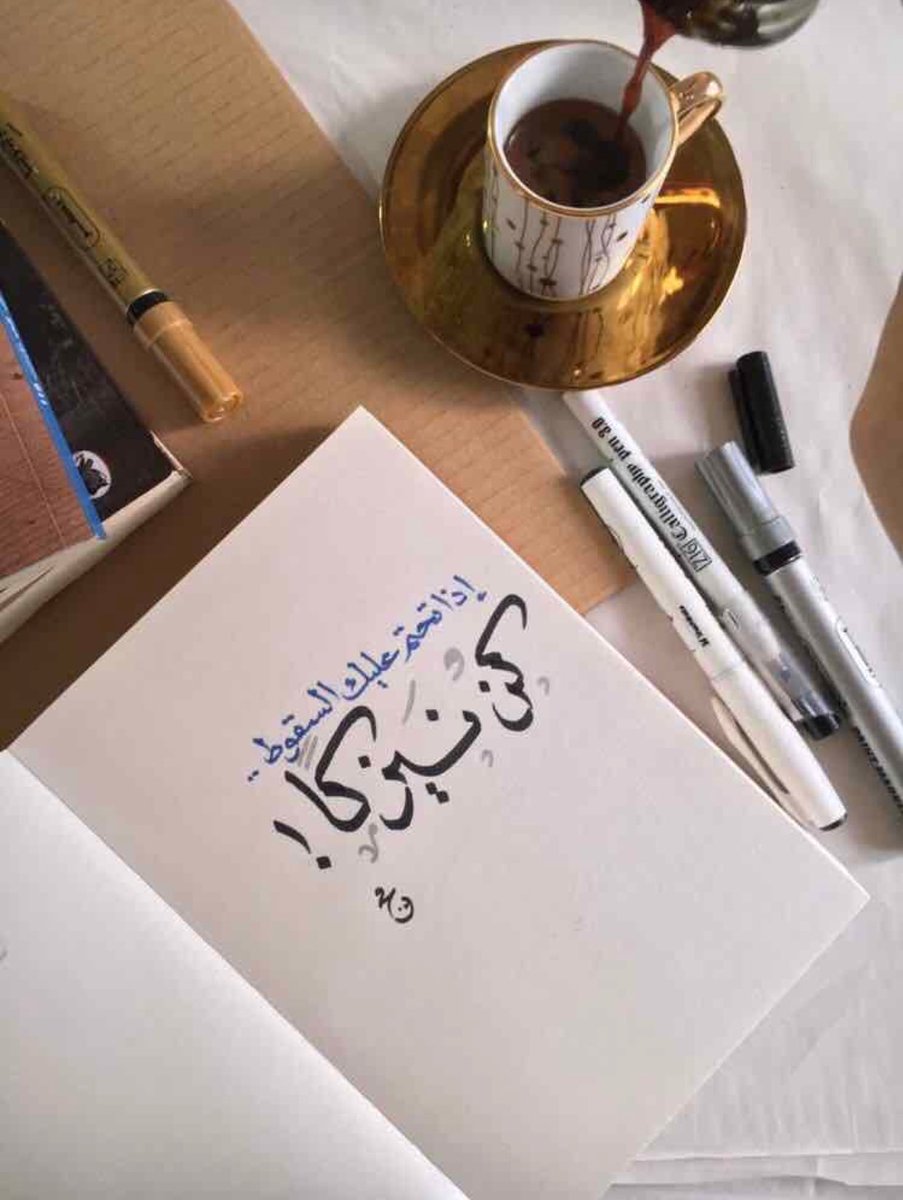 إذا تحتم عليك السقوط..
كن نيزكا!
ZIG Calligraphy pen 3.0